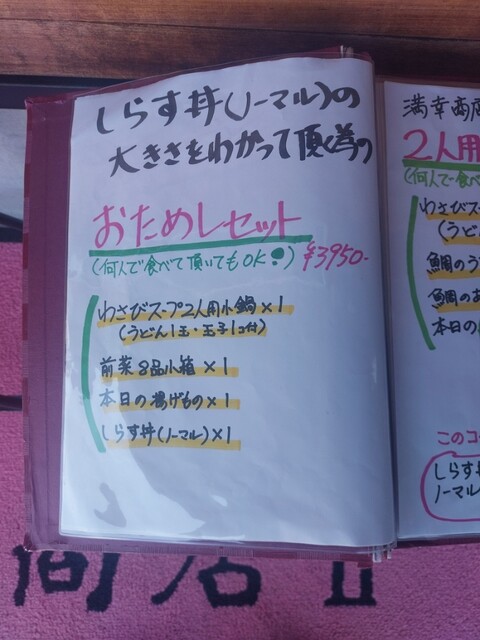 しらす丼(ノーマル)の
大きさをわかって頂く為の
おためしセット
(何人で食べて頂いてもOK!) ¥3950-
わさびスープ2人用小鍋×1
(うどん1玉・玉子1コ付)
前菜8品小箱×1
本日の揚げもの×1
しらす丼(ノーマル)×1
満幸商店
2人用
(何人で食べ
わさびス
(うど
鯛のう
鯛のあ
本日の
このコ
しらす
ノーマル
商店 II